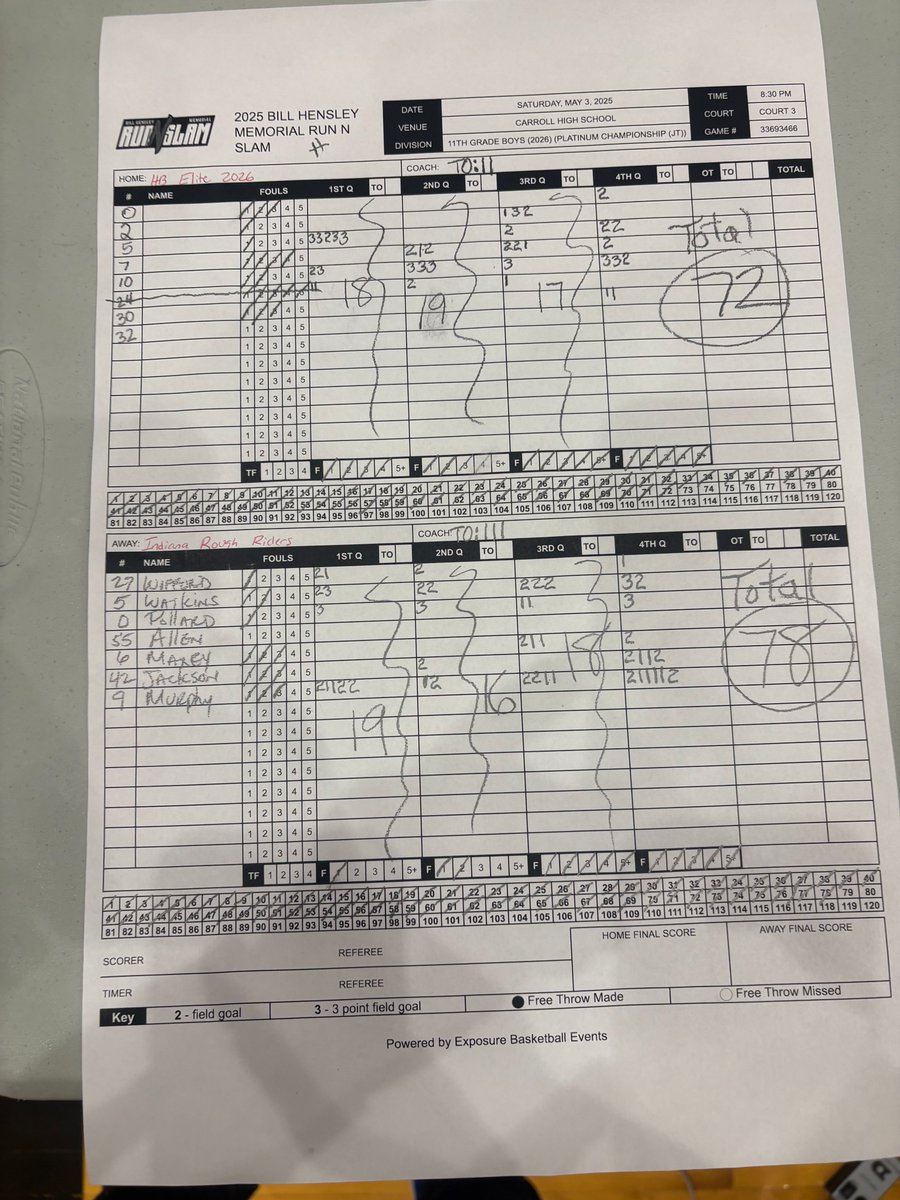 BILL HENSLEY MEMORIAL
RUN N SLAM
2025 BILL HENSLEY
MEMORIAL RUN N
SLAM
DATE SATURDAY, MAY 3, 2025 TIME 8:30 PM
VENUE CARROLL HIGH SCHOOL COURT COURT 3
DIVISION 11TH GRADE BOYS (2026) (PLATINUM CHAMPIONSHIP (JT)) GAME # 33693466
HOME: HB Elite 2026 COACH: TO:11
# NAME FOULS 1ST Q TO 2ND Q TO 3RD Q TO 4TH Q TO OT TO TOTAL
0 1 2 3 4 5 2
2 1 2 3 4 5 132
5 1 2 3 4 5 33233 2 22
7 1 2 3 4 5 212 221 2
10 1 2 3 4 5 23 333 3 332
24 1 2 3 4 5 11 2 1
30 1 2 3 4 5 11
32 1 2 3 4 5
18 19 17
Total
72
1 2 3 4 5
1 2 3 4 5
1 2 3 4 5
1 2 3 4 5
1 2 3 4 5
1 2 3 4 5
TF 1 2 3 4 F 1 2 3 4 5+ F 1 2 3 4 5+ F 1 2 3 4 5+ F 1 2 3 4 5+
1 2 3 4 5 6 7 8 9 10 11 12 13 14 15 16 17 18 19 20 21 22 23 24 25 26 27 28 29 30 31 32 33 34 35 36 37 38 39 40
41 42 43 44 45 46 47 48 49 50 51 52 53 54 55 56 57 58 59 60 61 62 63 64 65 66 67 68 69 70 71 72 73 74 75 76 77 78 79 80
81 82 83 84 85 86 87 88 89 90 91 92 93 94 95 96 97 98 99 100 101 102 103 104 105 106 107 108 109 110 111 112 113 114 115 116 117 118 119 120
AWAY: Indiana Rough Riders COACH: TO:111
# NAME FOULS 1ST Q TO 2ND Q TO 3RD Q TO 4TH Q TO OT TO TOTAL
27 WIFFORD 1 2 3 4 5 21 2 1
5 WATKINS 1 2 3 4 5 23 22 222 32
0 Pollard 1 2 3 4 5 3 3 11 3
55 Allen 1 2 3 4 5
6 MAXEY 1 2 3 4 5 211 2
42 JACKSON 1 2 3 4 5 2 2112
9 Murphy 1 2 3 4 5 21122 12 2211 211112
19 16 18
Total
78
1 2 3 4 5
1 2 3 4 5
1 2 3 4 5
1 2 3 4 5
1 2 3 4 5
1 2 3 4 5
1 2 3 4 5
1 2 3 4 5
TF 1 2 3 4 F 1 2 3 4 5+ F 1 2 3 4 5+ F 1 2 3 4 5+ F 1 2 3 4 5+
1 2 3 4 5 6 7 8 9 10 11 12 13 14 15 16 17 18 19 20 21 22 23 24 25 26 27 28 29 30 31 32 33 34 35 36 37 38 39 40
41 42 43 44 45 46 47 48 49 50 51 52 53 54 55 56 57 58 59 60 61 62 63 64 65 66 67 68 69 70 71 72 73 74 75 76 77 78 79 80
81 82 83 84 85 86 87 88 89 90 91 92 93 94 95 96 97 98 99 100 101 102 103 104 105 106 107 108 109 110 111 112 113 114 115 116 117 118 119 120
SCORER REFEREE HOME FINAL SCORE AWAY FINAL SCORE
TIMER REFEREE
Key 2 - field goal 3 - 3 point field goal Free Throw Made Free Throw Missed
Powered by Exposure Basketball Events